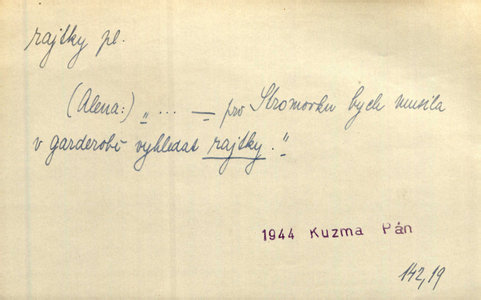 rajtky pl.
(Alena:) „ ... — pro Stromovku bych musila
v garderobě vyhledat rajtky."
1944 Kuzma Pán
142,19